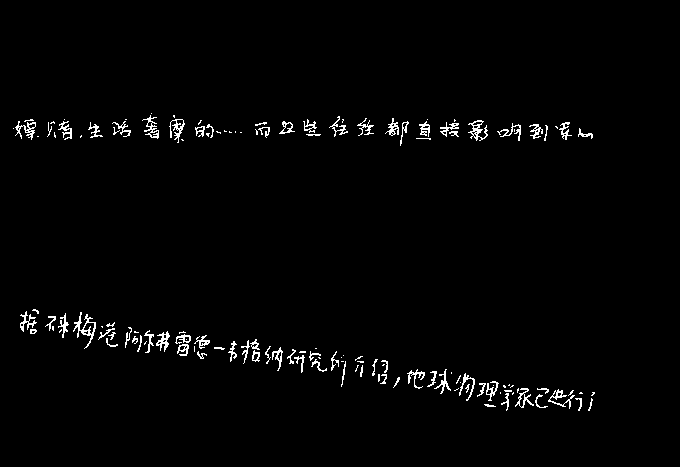 嫖.赌.生活奢糜的……而这些往往都直接影响到家
据不来梅港阿尔弗雷德一韦格纳研究所介绍,地球物理学家已进行了